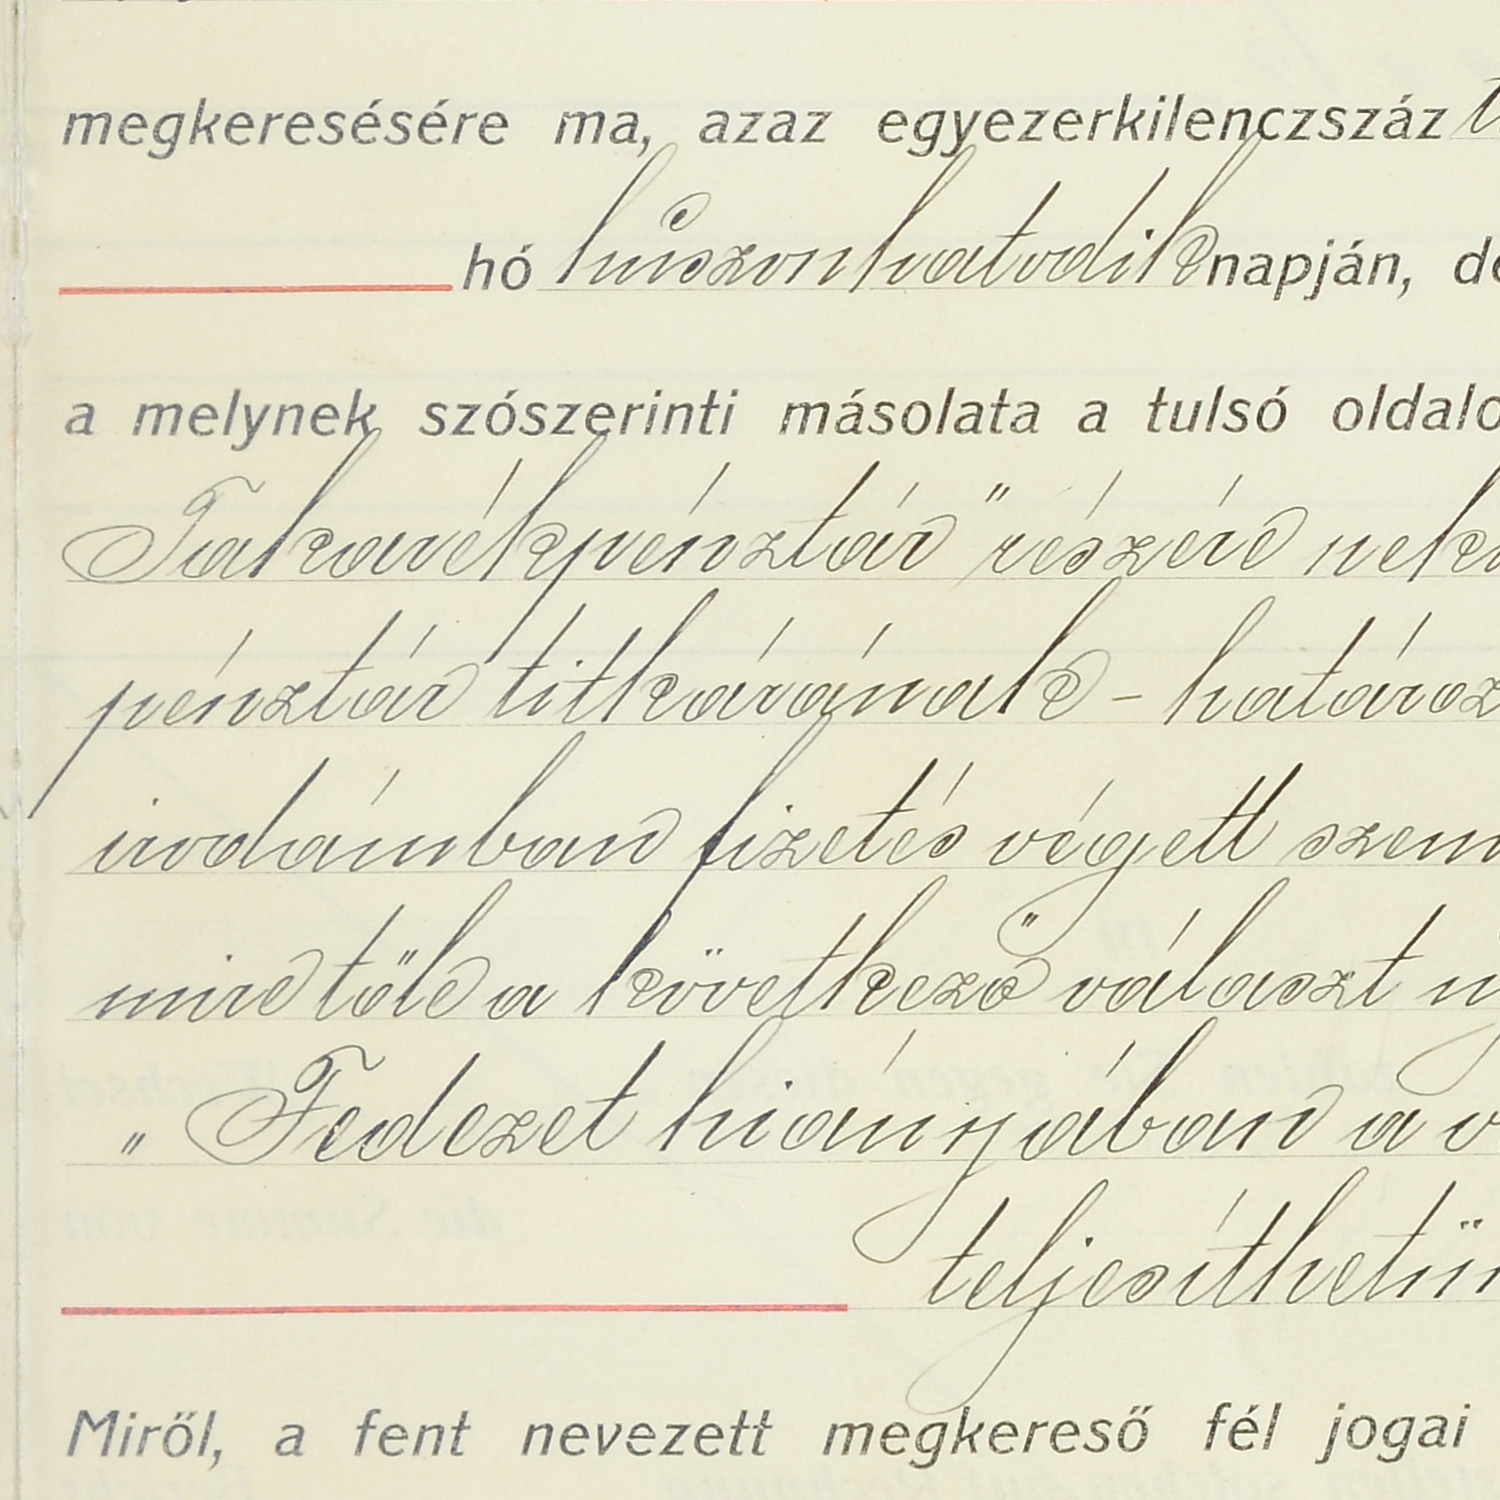 megkeresésére ma, azaz egyezerkilenczszáz
hó huszonhatodik napján,
a melynek szószerinti másolata a tulsó
Takarékpénztár" részére
pénztár titkárának –
irodámban fizetés végett
mire tőle a következő választ
„Fedezet hiányában a
Miről, a fent nevezett megkereső fél jogai